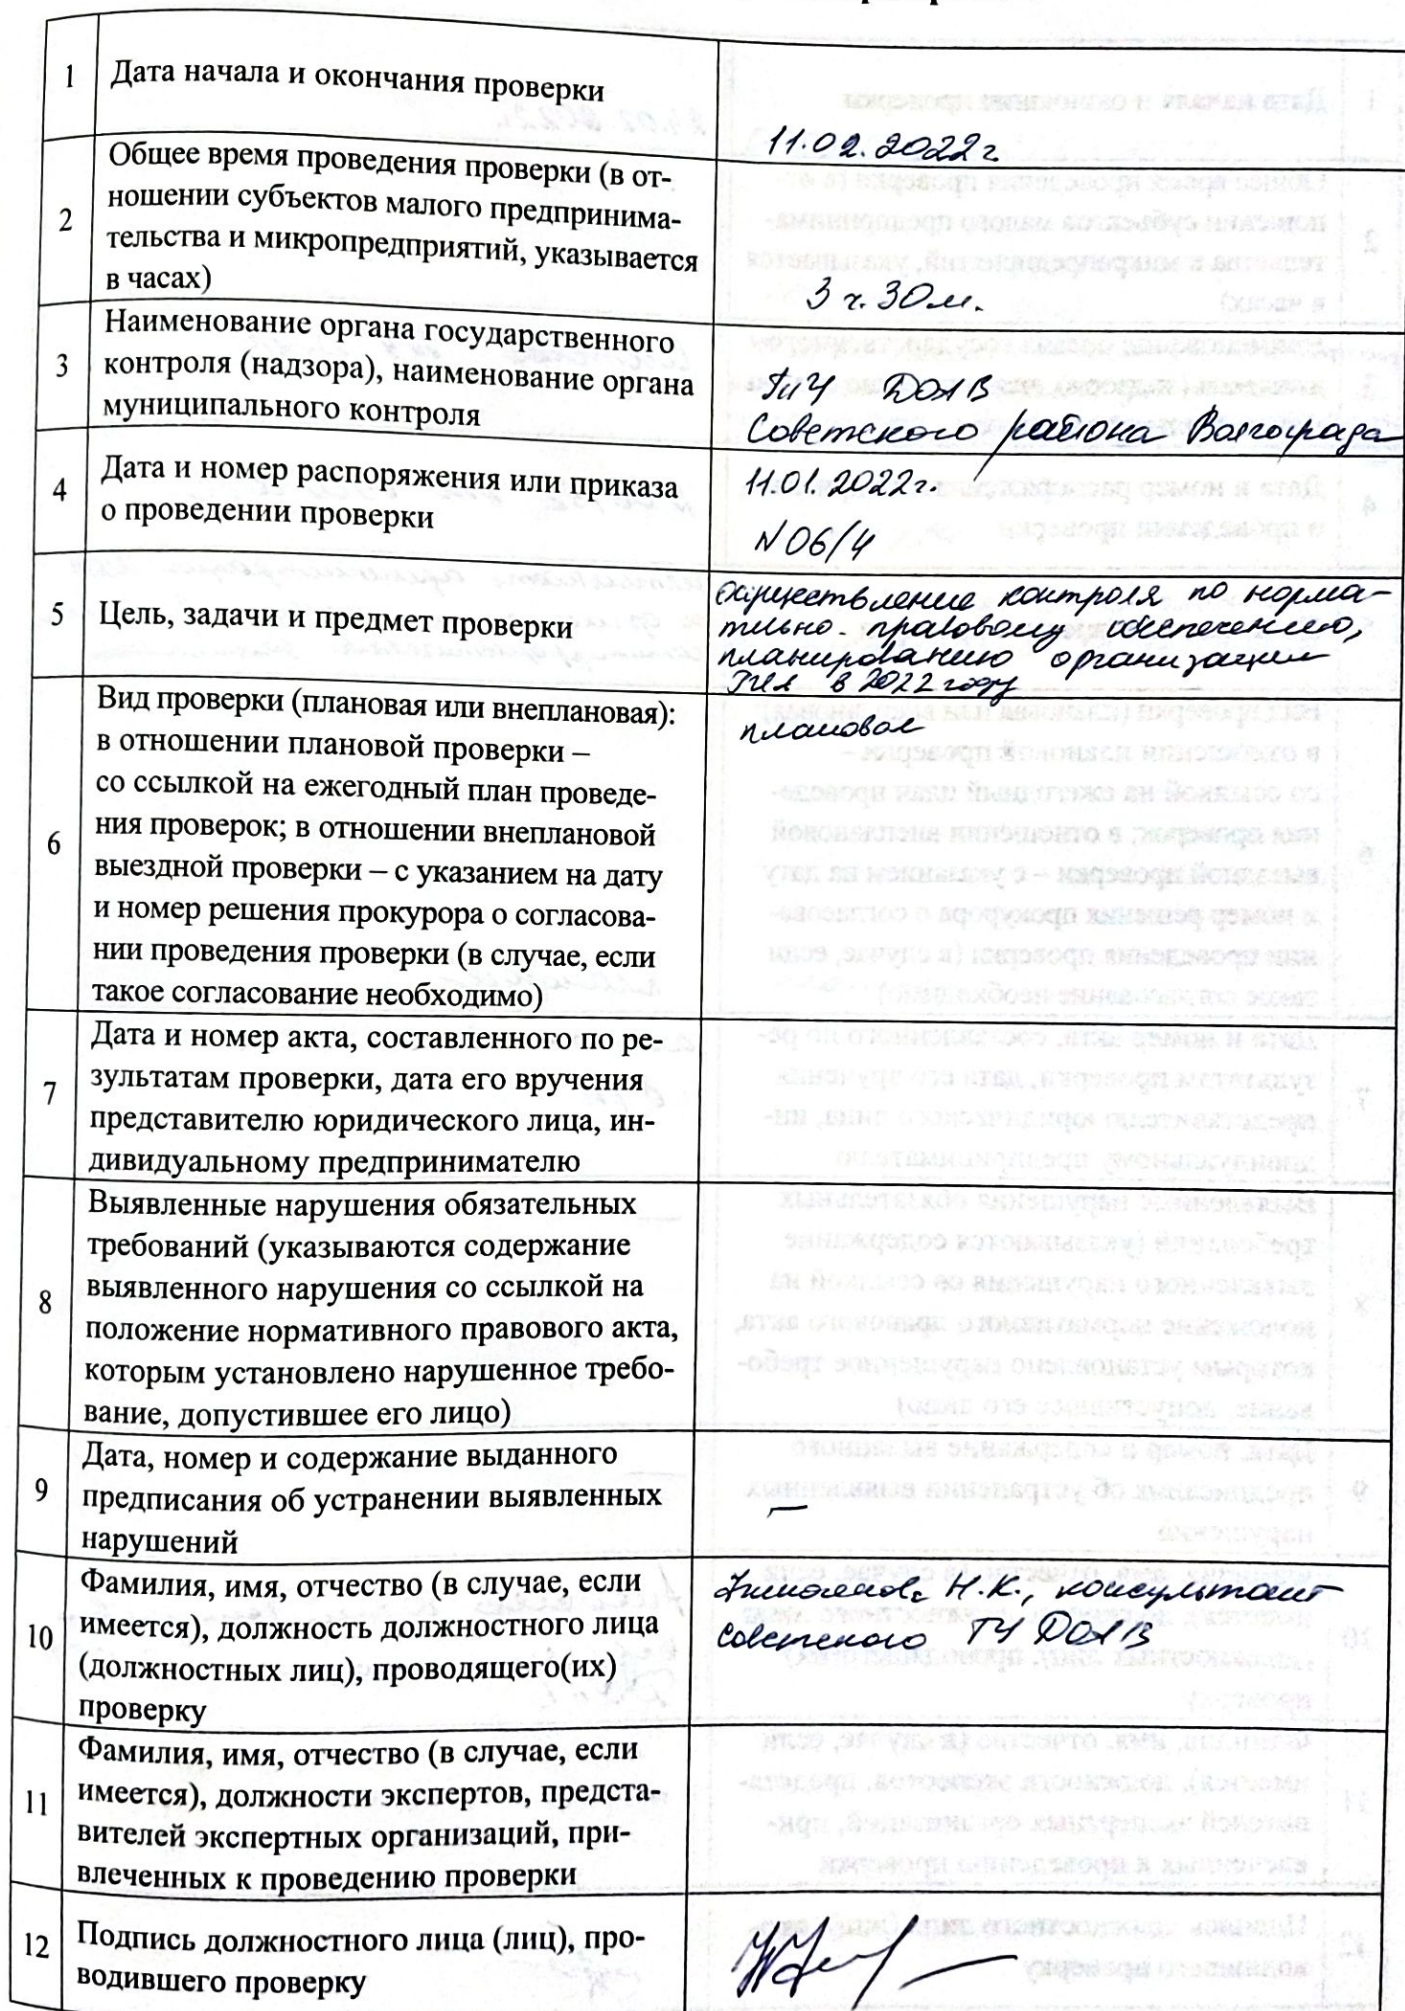 1 Дата начала и окончания проверки
11.02.2022г
2 Общее время проведения проверки (в от-
ношении субъектов малого предпринима-
тельства и микропредприятий, указывается
в часах)
3 ч. 30 м.
3 Наименование органа государственного
контроля (надзора), наименование органа
муниципального контроля
ТУ ДОАВ
Советского района Волгограда
4 Дата и номер распоряжения или приказа
о проведении проверки
11.01.2022г.
N 06/4
5 Цель, задачи и предмет проверки
осуществление контроля по норма-
тивно-правовому обеспечению,
планированию организации
в 2022 году
6 Вид проверки (плановая или внеплановая):
в отношении плановой проверки –
со ссылкой на ежегодный план проведе-
ния проверок; в отношении внеплановой
выездной проверки – с указанием на дату
и номер решения прокурора о согласова-
нии проведения проверки (в случае, если
такое согласование необходимо)
плановая
7 Дата и номер акта, составленного по ре-
зультатам проверки, дата его вручения
представителю юридического лица, ин-
дивидуальному предпринимателю
8 Выявленные нарушения обязательных
требований (указываются содержание
выявленного нарушения со ссылкой на
положение нормативного правового акта,
которым установлено нарушенное требо-
вание, допустившее его лицо)
9 Дата, номер и содержание выданного
предписания об устранении выявленных
нарушений
–
10 Фамилия, имя, отчество (в случае, если
имеется), должность должностного лица
(должностных лиц), проводящего(их)
проверку
Н.К., консультант
Советского ТУ ДОАВ
11 Фамилия, имя, отчество (в случае, если
имеется), должности экспертов, предста-
вителей экспертных организаций, при-
влеченных к проведению проверки
12 Подпись должностного лица (лиц), про-
водившего проверку